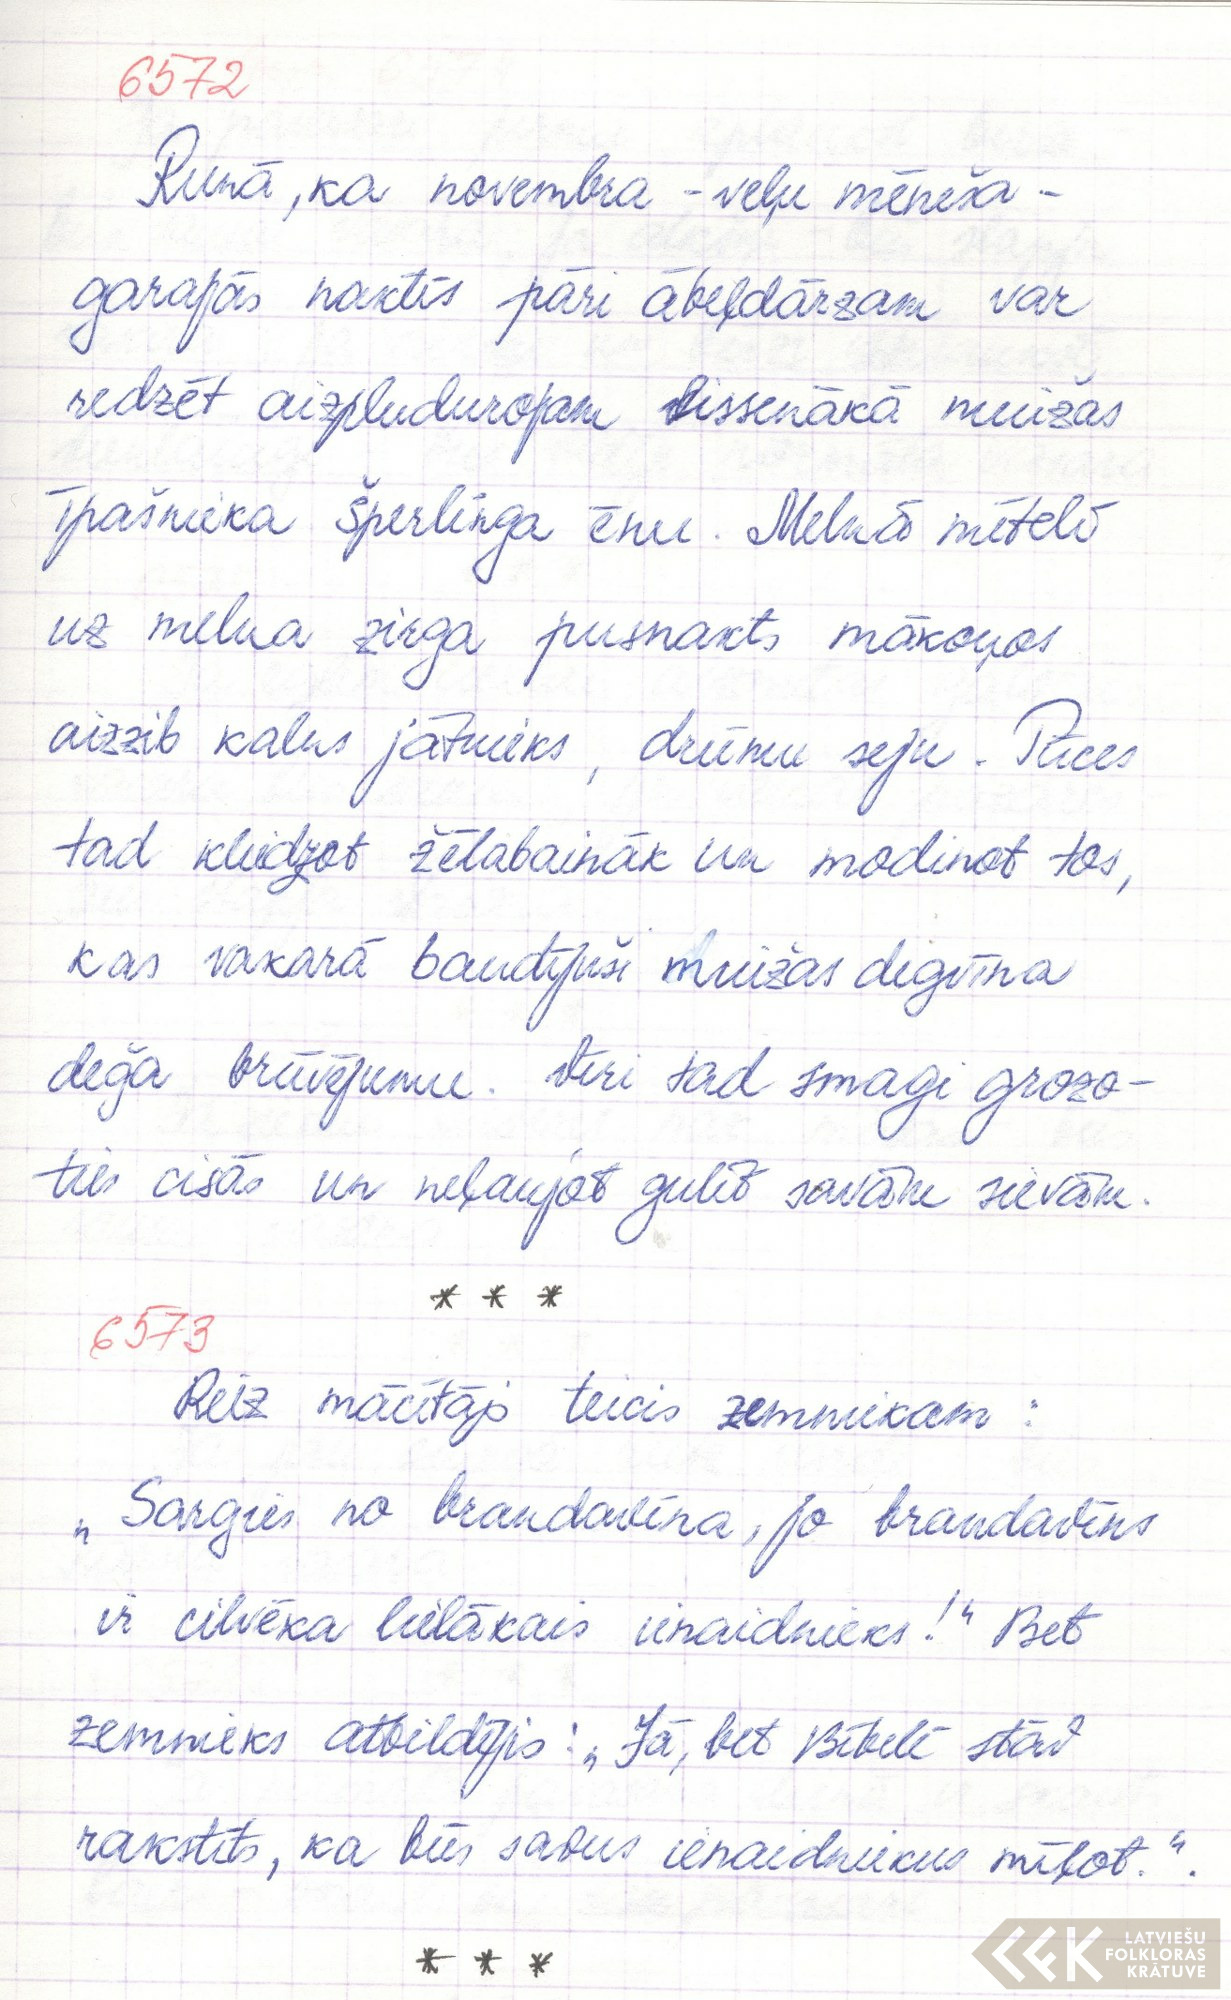 6572
Runā, ka novembra - veļu mēneša -
garajās naktīs pāri ābeļdārzam var
redzēt aizpludurojam vissenākā muižas
īpašnieka Šperlinga ēnu. Melnā mētelī
uz melna zirga pusnakts mākoņos
aizzib kalns jātnieks, drūmu seju. Pūces
tad kliedzot žēlabaināk un modinot tos,
kas vakarā baudījuši muižas degvīna
deģa brūvējumu. Vīri tad smagi grozo-
ties cisās un neļaujot gulēt savām sievām.
* * *
6573
Reiz mācītājs teicis zemniekam:
„Sargies no brandavīna, jo brandavīns
ir cilvēka lielākais ienaidnieks!" Bet
zemnieks atbildējis: „Jā, bet Bībelē stāv
rakstīts, ka būs savus ienaidniekus mīļot.".
* * *
LFK LATVIEŠU
FOLKLORAS
KRĀTUVE